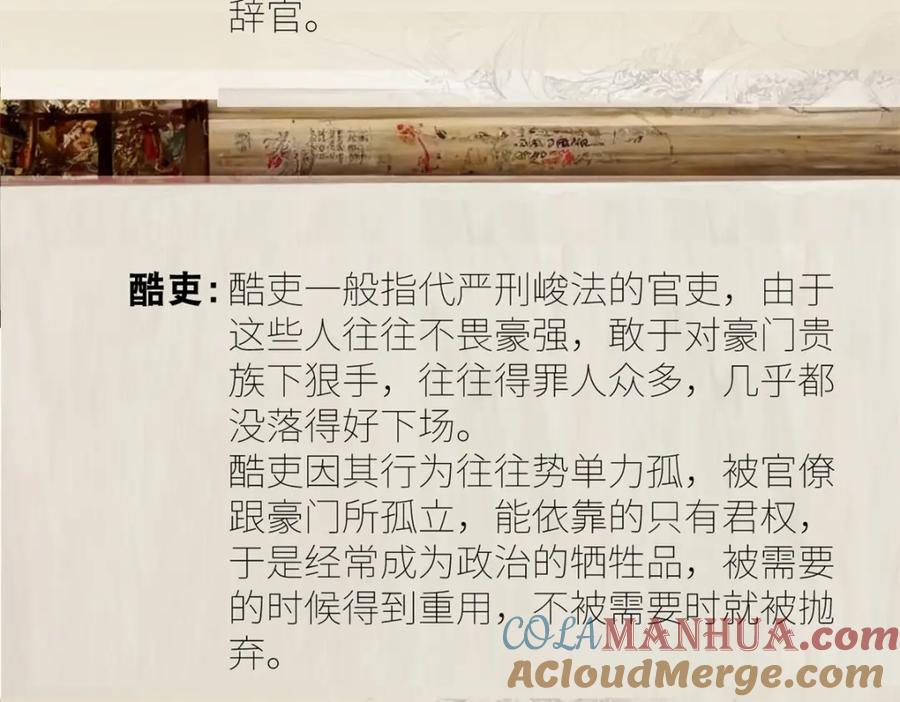 辞官。
酷吏：酷吏一般指代严刑峻法的官吏，由于
这些人往往不畏豪强，敢于对豪门贵
族下狠手，往往得罪人众多，几乎都
没落得好下场。
酷吏因其行为往往势单力孤，被官僚
跟豪门所孤立，能依靠的只有君权，
于是经常成为政治的牺牲品，被需要
的时候得到重用，不被需要时就被抛
弃。
COLAMANHUA.com
ACloudMerge.com